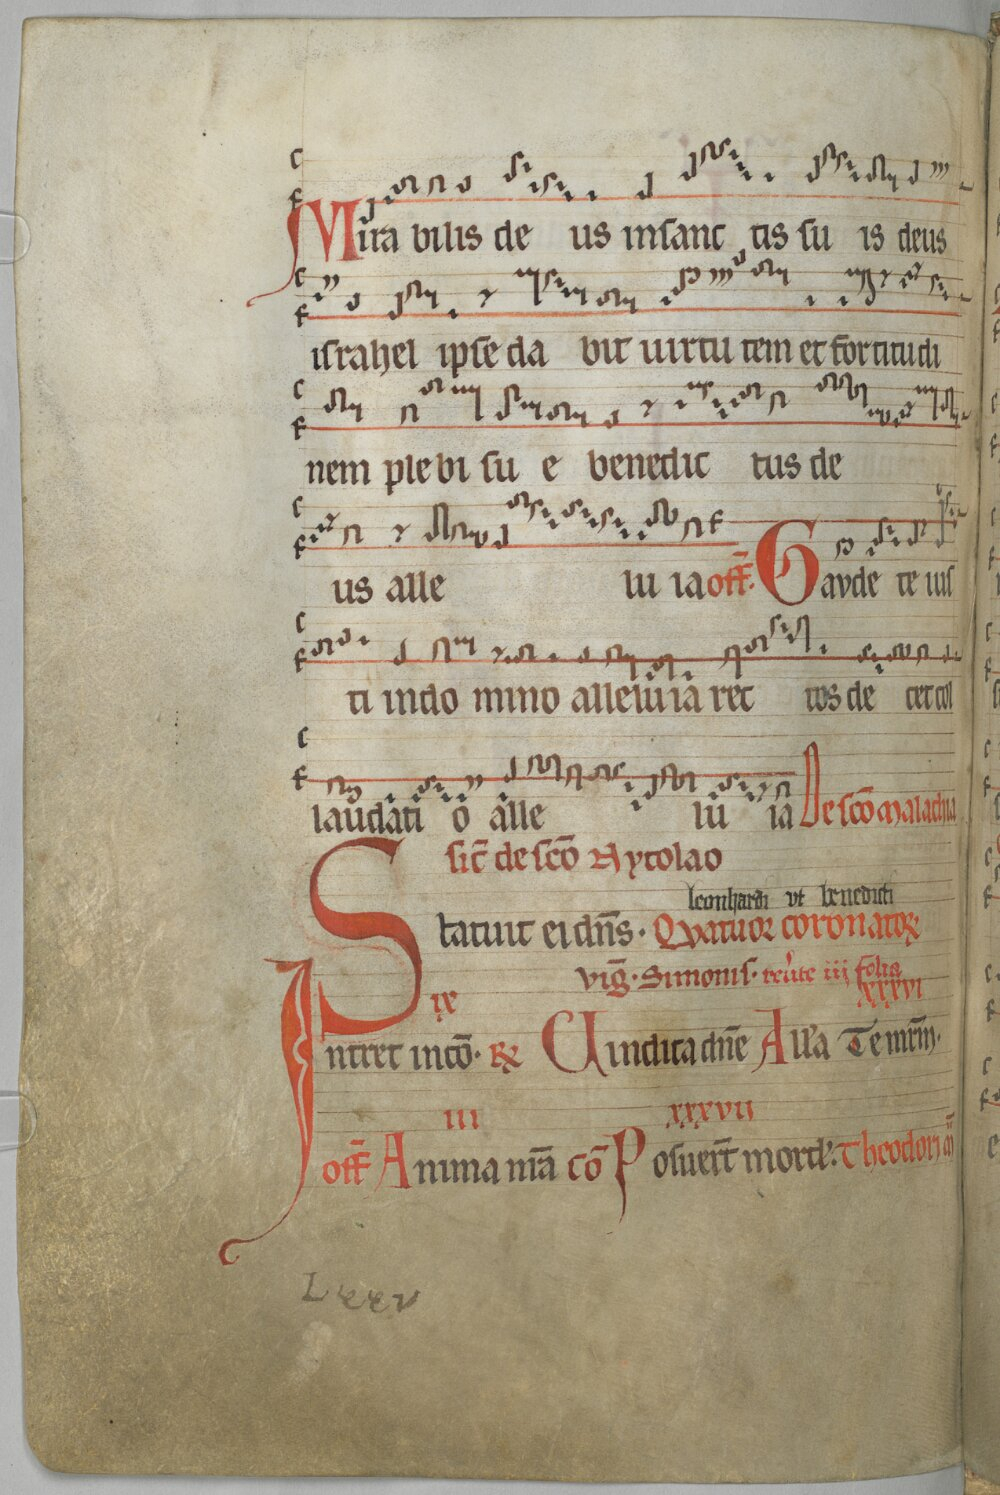 Mira bilis de us in sanc tis su is deus
israhel ipse da bit uirtu tem et fortitudi
nem plebi su e benedic tus de
us alle lu ia off̄. Gavde te ius
ti in do mino alleluia rec tos de cet col
laudati o alle lu ia De scō malachia
sic̄ de scō Nycolao
leonhardi vt benedicti
Statuit ei dn̄s. Qvatuor coronator
viḡ. Simonis. folia
ix xxxvi
Intret in cō. R Uindica dn̄e All'a Te mr̄m.
iii xxxvii
off̄ Anima nr̄a cō Posuer̄t mort. Theodori m̄
Lxxv